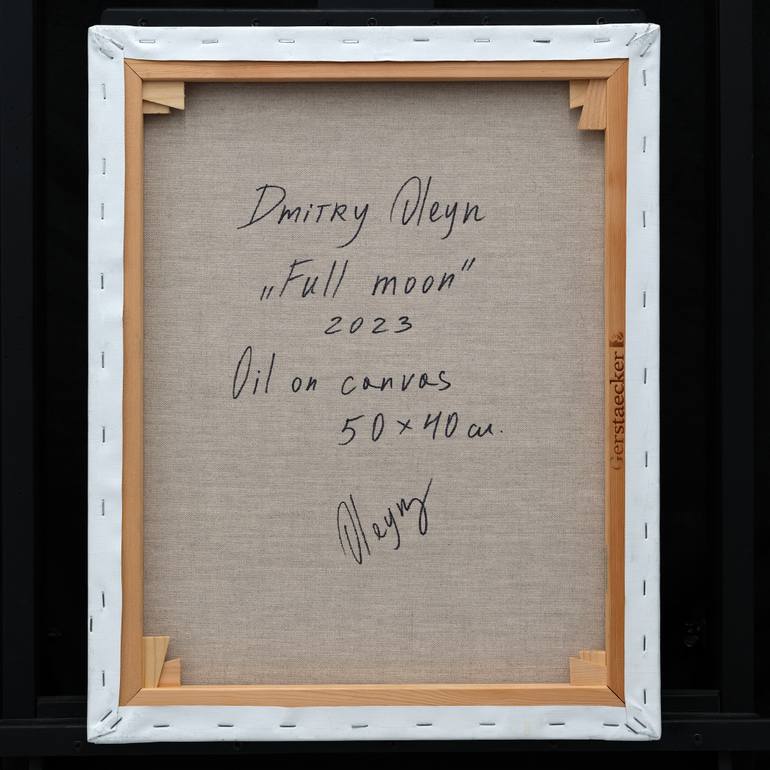 Dmitry Oleyn
„Full moon"
2023
Oil on canvas
50 × 40 см.
Oleyn
Gerstaecker